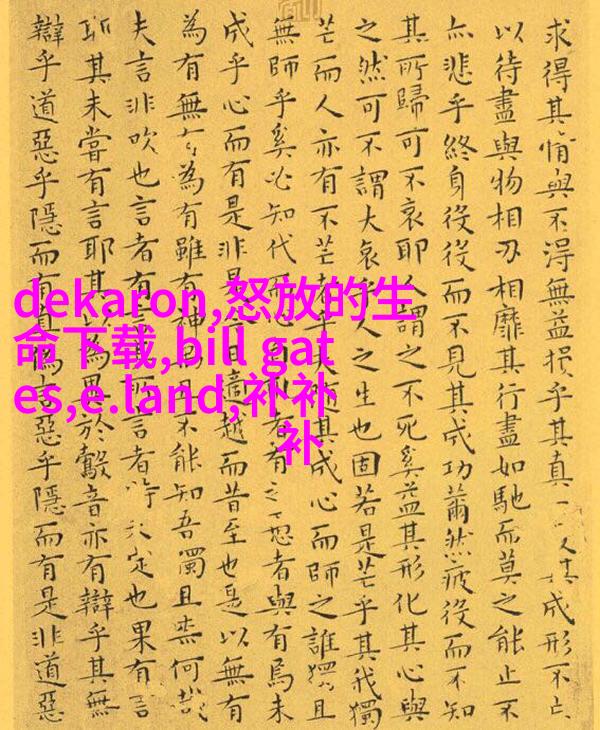 求得其情與不得無益損乎其真一其成形不亡
以待盡與物相刃相靡其行盡如馳而莫之能止不
亦悲乎終身役役而不見其成功薾然疲役而不知
其所歸可不哀耶人謂之不死奚益其形化其心與
之然可不謂大哀乎人之生也固若是芒乎其我獨
芒而人亦有不芒者乎夫隨其成心而師之誰獨且
無師乎奚必知代而心自取有之愚者與有焉未
成乎心而有是非是今日適越而昔至也是以無有
為有無〻為有雖有神禹且不能知吾獨且柰何哉
夫言非吹也言者有言所言者特未定也果有言
耶其未嘗有言耶其以為異於鷇音亦有辯乎其無
辯乎道惡乎隱而有真偽言惡乎隱而有是非道惡
dekaron,怒放的生
命下载,bill gat
es,e.land,补补
补